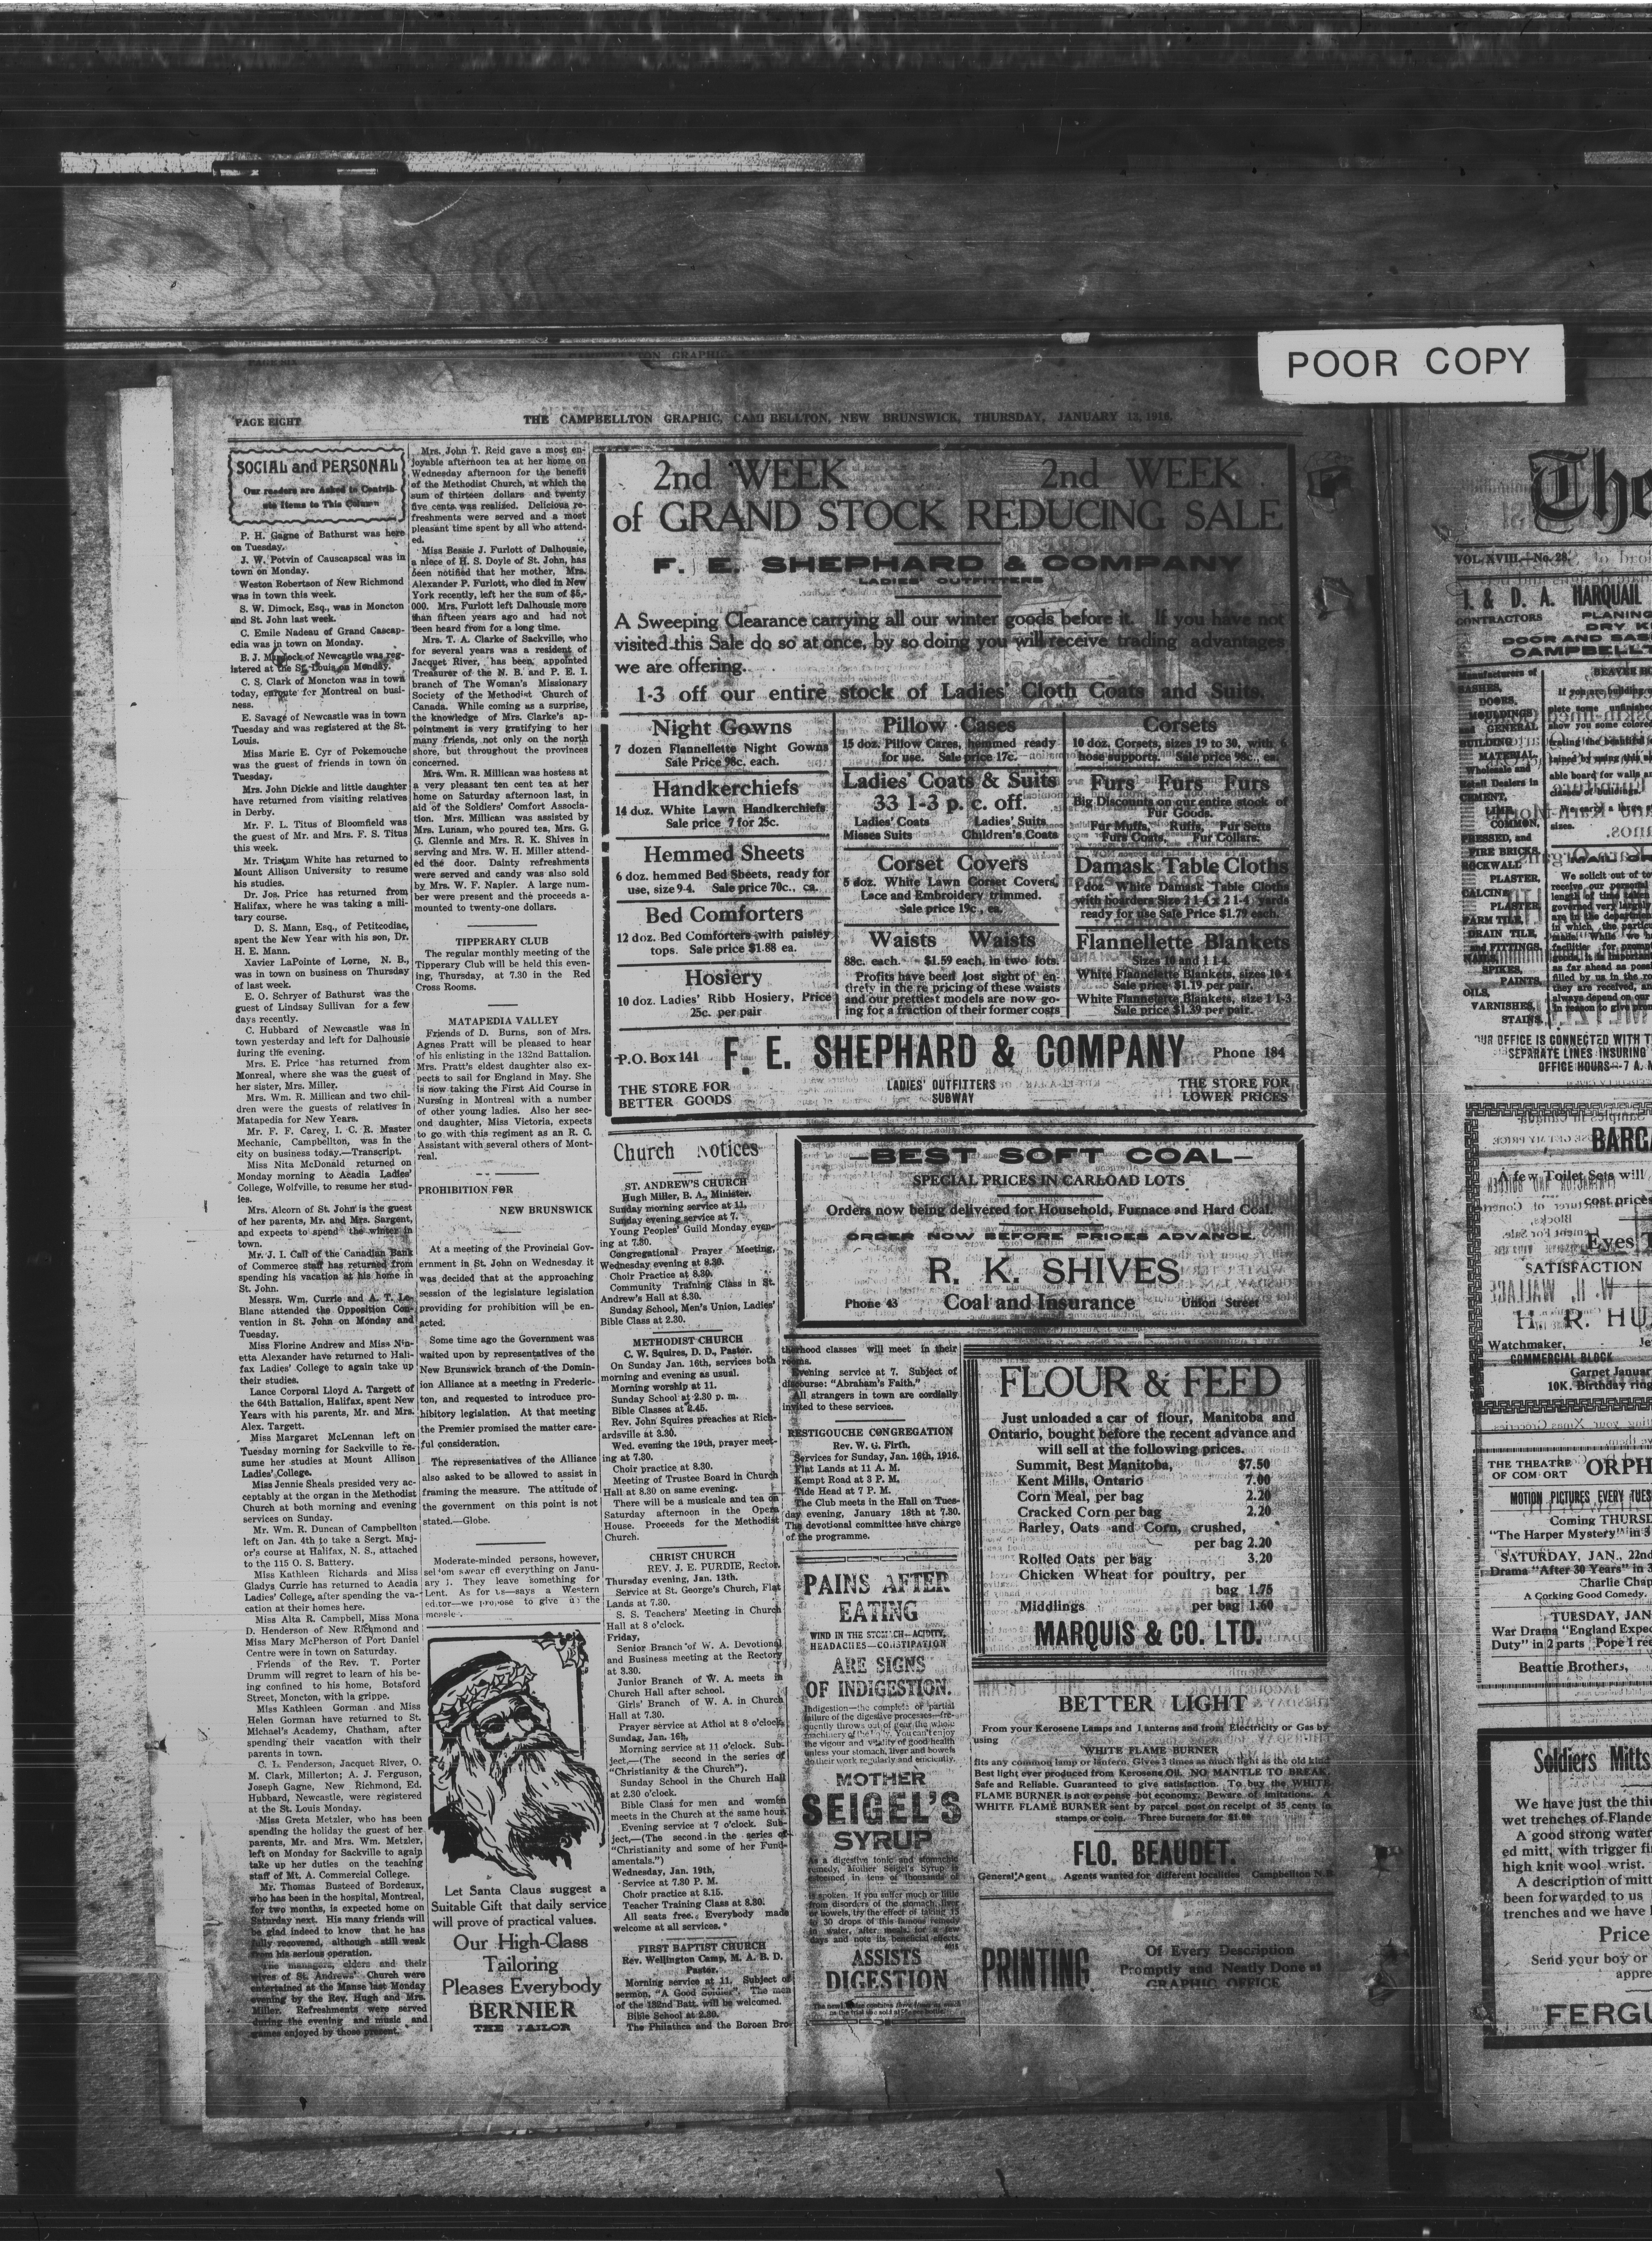 POOR COPY
PAGE EIGHT
THE CAMPBELLTON GRAPHIC, CAMPBELLTON, NEW BRUNSWICK, THURSDAY, JANUARY 13, 1916.
SOCIAL and PERSONAL
Our readers are Asked to Contrib-
ute Items to This Column
P. H. Gagne of Bathurst was here
on Tuesday.
J. W. Potvin of Causcapscal was in
town on Monday.
Weston Robertson of New Richmond
was in town this week.
S. W. Dimock, Esq., was in Moncton
and St. John last week.
C. Emile Nadeau of Grand Cascap-
edia was in town on Monday.
B. J. Murdock of Newcastle was reg-
istered at the St. Louis on Monday.
C. S. Clark of Moncton was in town
today, enroute for Montreal on busi-
ness.
E. Savage of Newcastle was in town
Tuesday and was registered at the St.
Louis.
Miss Marie E. Cyr of Pokemouche
was the guest of friends in town on
Tuesday.
Mrs. John Dickie and little daughter
have returned from visiting relatives
in Derby.
Mr. F. L. Titus of Bloomfield was
the guest of Mr. and Mrs. F. S. Titus
this week.
Mr. Tristum White has returned to
Mount Allison University to resume
his studies.
Dr. Jos. Price has returned from
Halifax, where he was taking a mili-
tary course.
D. S. Mann, Esq., of Petitcodiac,
spent the New Year with his son, Dr.
H. E. Mann.
Xavier LaPointe of Lorne, N. B.,
was in town on business on Thursday
of last week.
E. O. Schryer of Bathurst was the
guest of Lindsay Sullivan for a few
days recently.
C. Hubbard of Newcastle was in
town yesterday and left for Dalhousie
during the evening.
Mrs. E. Price has returned from
Monreal, where she was the guest of
her sister, Mrs. Miller.
Mrs. Wm. R. Millican and two chil-
dren were the guests of relatives in
Matapedia for New Years.
Mr. F. F. Carey, I. C. R. Master
Mechanic, Campbellton, was in the
city on business today.—Transcript.
Miss Nita McDonald returned on
Monday morning to Acadia Ladies'
College, Wolfville, to resume her stud-
ies.
Mrs. Alcorn of St. John is the guest
of her parents, Mr. and Mrs. Sargent,
and expects to spend the winter in
town.
Mr. J. I. Call of the Canadian Bank
of Commerce staff has returned from
spending his vacation at his home in
St. John.
Messrs. Wm. Currie and A. T. Le-
Blanc attended the Opposition Con-
vention in St. John on Monday and
Tuesday.
Miss Florine Andrew and Miss Nin-
etta Alexander have returned to Hali-
fax Ladies' College to again take up
their studies.
Lance Corporal Lloyd A. Targett of
the 64th Battalion, Halifax, spent New
Years with his parents, Mr. and Mrs.
Alex. Targett.
Miss Margaret McLennan left on
Tuesday morning for Sackville to re-
sume her studies at Mount Allison
Ladies' College.
Miss Jennie Sheals presided very ac-
ceptably at the organ in the Methodist
Church at both morning and evening
services on Sunday.
Mr. Wm. R. Duncan of Campbellton
left on Jan. 4th to take a Sergt. Maj-
or's course at Halifax, N. S., attached
to the 115 O. S. Battery.
Miss Kathleen Richards and Miss
Gladys Currie has returned to Acadia
Ladies' College, after spending the va-
cation at their homes here.
Miss Alta R. Campbell, Miss Mona
D. Henderson of New Richmond and
Miss Mary McPherson of Port Daniel
Centre were in town on Saturday.
Friends of the Rev. T. Porter
Drumm will regret to learn of his be-
ing confined to his home, Botsford
Street, Moncton, with la grippe.
Miss Kathleen Gorman and Miss
Helen Gorman have returned to St.
Michael's Academy, Chatham, after
spending their vacation with their
parents in town.
C. L. Fenderson, Jacquet River, O.
M. Clark, Millerton; A. J. Ferguson,
Joseph Gagne, New Richmond, Ed.
Hubbard, Newcastle, were registered
at the St. Louis Monday.
Miss Greta Metzler, who has been
spending the holiday the guest of her
parents, Mr. and Mrs. Wm. Metzler,
left on Monday for Sackville to again
take up her duties on the teaching
staff of Mt. A. Commercial College.
Mr. Thomas Busteed of Bordeaux,
who has been in the hospital, Montreal,
for two months, is expected home on
Saturday next. His many friends will
be glad indeed to know that he has
fully recovered, although still weak
from his serious operation.
The managers, elders and their
wives of St. Andrews' Church were
entertained at the Manse last Monday
evening by the Rev. Hugh and Mrs.
Miller. Refreshments were served
during the evening and music and
games enjoyed by those present.
Mrs. John T. Reid gave a most en-
joyable afternoon tea at her home on
Wednesday afternoon for the benefit
of the Methodist Church, at which the
sum of thirteen dollars and twenty
five cents was realized. Delicious re-
freshments were served and a most
pleasant time spent by all who attend-
ed.
Miss Bessie J. Furlott of Dalhousie,
a niece of H. S. Doyle of St. John, has
been notified that her mother, Mrs.
Alexander P. Furlott, who died in New
York recently, left her the sum of $5,-
000. Mrs. Furlott left Dalhousie more
than fifteen years ago and had not
been heard from for a long time.
Mrs. T. A. Clarke of Sackville, who
for several years was a resident of
Jacquet River, has been appointed
Treasurer of the N. B. and P. E. I.
branch of The Woman's Missionary
Society of the Methodist Church of
Canada. While coming as a surprise,
the knowledge of Mrs. Clarke's ap-
pointment is very gratifying to her
many friends, not only on the north
shore, but throughout the provinces
concerned.
Mrs. Wm. R. Millican was hostess at
a very pleasant ten cent tea at her
home on Saturday afternoon last, in
aid of the Soldiers' Comfort Associa-
tion. Mrs. Millican was assisted by
Mrs. Lunam, who poured tea, Mrs. G.
G. Glennie and Mrs. R. K. Shives in
serving and Mrs. W. H. Miller attend-
ed the door. Dainty refreshments
were served and candy was also sold
by Mrs. W. F. Napier. A large num-
ber were present and the proceeds a-
mounted to twenty-one dollars.
TIPPERARY CLUB
The regular monthly meeting of the
Tipperary Club will be held this even-
ing, Thursday, at 7.30 in the Red
Cross Rooms.
MATAPEDIA VALLEY
Friends of D. Burns, son of Mrs.
Agnes Pratt will be pleased to hear
of his enlisting in the 132nd Battalion.
Mrs. Pratt's eldest daughter also ex-
pects to sail for England in May. She
is now taking the First Aid Course in
Nursing in Montreal with a number
of other young ladies. Also her sec-
ond daughter, Miss Victoria, expects
to go with this regiment as an R. C.
Assistant with several others of Mont-
real.
PROHIBITION FOR
NEW BRUNSWICK
At a meeting of the Provincial Gov-
ernment in St. John on Wednesday it
was decided that at the approaching
session of the legislature legislation
providing for prohibition will be en-
acted.
Some time ago the Government was
waited upon by representatives of the
New Brunswick branch of the Domin-
ion Alliance at a meeting in Frederic-
ton, and requested to introduce pro-
hibitory legislation. At that meeting
the Premier promised the matter care-
ful consideration.
The representatives of the Alliance
also asked to be allowed to assist in
framing the measure. The attitude of
the government on this point is not
stated.—Globe.
Moderate-minded persons, however,
seldom swear off everything on Janu-
ary 1. They leave something for
Lent. As for us—says a Western
editor—we propose to give up the
Let Santa Claus suggest a
Suitable Gift that daily service
will prove of practical values.
Our High-Class
Tailoring
Pleases Everybody
BERNIER
THE TAILOR
2nd WEEK 2nd WEEK
of GRAND STOCK REDUCING SALE
F. E. SHEPHARD & COMPANY
LADIES' OUTFITTERS
A Sweeping Clearance carrying all our winter goods before it. If you have not
visited this Sale do so at once, by so doing you will receive trading advantages
we are offering.
1-3 off our entire stock of Ladies' Cloth Coats and Suits.
Night Gowns
7 dozen Flannellette Night Gowns
Sale Price 98c. each.
Handkerchiefs
14 doz. White Lawn Handkerchiefs
Sale price 7 for 25c.
Hemmed Sheets
6 doz. hemmed Bed Sheets, ready for
use, size 9-4. Sale price 70c., ea.
Bed Comforters
12 doz. Bed Comforters with paisley
tops. Sale price $1.88 ea.
Hosiery
10 doz. Ladies' Ribb Hosiery, Price
25c. per pair
Pillow Cases
15 doz. Pillow Cares, hemmed ready
for use. Sale price 17c.
Ladies' Coats & Suits
33 1-3 p. c. off.
Ladies' Coats Ladies' Suits
Misses Suits Children's Coats
Corset Covers
5 doz. White Lawn Corset Covers,
Lace and Embroidery trimmed.
Sale price 19c., ea.
Waists Waists
88c. each. $1.59 each, in two lots.
Profits have been lost sight of en-
tirely in the re pricing of these waists
and our prettiest models are now go-
ing for a fraction of their former costs
Corsets
10 doz. Corsets, sizes 19 to 30, with 6
hose supports. Sale price 98c., ea.
Furs Furs Furs
Big Discounts on our entire stock of
Fur Goods.
Fur Muffs, Ruffs, Fur Setts
Furs Coats, Fur Collars.
Damask Table Cloths
doz White Damask Table Cloths
with boarders Size 2 1-4 x 2 1-4 yards
ready for use Sale Price $1.79 each.
Flannellette Blankets
Sizes 10 and 11-4.
White Flannelette Blankets, sizes 10-4
Sale price $1.19 per pair.
White Flannelette Blankets, size 11-3
Sale price $1.39 per pair.
P.O. Box 141 F. E. SHEPHARD & COMPANY Phone 184
THE STORE FOR
BETTER GOODS
LADIES' OUTFITTERS
SUBWAY
THE STORE FOR
LOWER PRICES
Church Notices
ST. ANDREW'S CHURCH
Hugh Miller, B. A., Minister.
Sunday morning service at 11.
Sunday evening service at 7.
Young Peoples' Guild Monday even-
ing at 7.30.
Congregational Prayer Meeting,
Wednesday evening at 8.30.
Choir Practice at 8.30.
Community Training Class in St.
Andrew's Hall at 8.30.
Sunday School, Men's Union, Ladies'
Bible Class at 2.30.
METHODIST CHURCH
C. W. Squires, D. D., Pastor.
On Sunday Jan. 16th, services both
morning and evening as usual.
Morning worship at 11.
Sunday School at 2.30 p. m.
Bible Classes at 2.45.
Rev. John Squires preaches at Rich-
ardsville at 3.30.
Wed. evening the 19th, prayer meet-
ing at 7.30.
Choir practice at 8.30.
Meeting of Trustee Board in Church
Hall at 8.30 on same evening.
There will be a musicale and tea on
Saturday afternoon in the Opera
House. Proceeds for the Methodist
Church.
CHRIST CHURCH
REV. J. E. PURDIE, Rector.
Thursday evening, Jan. 13th.
Service at St. George's Church, Flat
Lands at 7.30.
S. S. Teachers' Meeting in Church
Hall at 8 o'clock.
Friday,
Senior Branch of W. A. Devotional
and Business meeting at the Rectory
at 3.30.
Junior Branch of W. A. meets in
Church Hall after school.
Girls' Branch of W. A. in Church
Hall at 7.30.
Prayer service at Athol at 8 o'clock.
Sunday, Jan. 16th,
Morning service at 11 o'clock. Sub-
ject,—(The second in the series of
"Christianity & the Church").
Sunday School in the Church Hall
at 2.30 o'clock.
Bible Class for men and women
meets in the Church at the same hour.
Evening service at 7 o'clock. Sub-
ject,—(The second in the series of
"Christianity and some of her Fund-
amentals.")
Wednesday, Jan. 19th,
Service at 7.30 P. M.
Choir practice at 8.15.
Teacher Training Class at 8.30.
All seats free. Everybody made
welcome at all services.
FIRST BAPTIST CHURCH
Rev. Wellington Camp, M. A. B. D.
Pastor.
Morning service at 11. Subject of
sermon, "A Good Soldier". The men
of the 132nd Batt. will be welcomed.
Bible School at 2.30.
The Philathea and the Boroen Bro-
therhood classes will meet in their
rooms.
Evening service at 7. Subject of
discourse: "Abraham's Faith."
All strangers in town are cordially
invited to these services.
RESTIGOUCHE CONGREGATION
Rev. W. G. Firth.
Services for Sunday, Jan. 16th, 1916.
Flat Lands at 11 A. M.
Kempt Road at 3 P. M.
Tide Head at 7 P. M.
The Club meets in the Hall on Tues-
day evening, January 18th at 7.30.
The devotional committee have charge
of the programme.
PAINS AFTER
EATING
WIND IN THE STOMACH—ACIDITY,
HEADACHES—CONSTIPATION
ARE SIGNS
OF INDIGESTION.
Indigestion—the complete or partial
failure of the digestive processes—fre-
quently throws out of gear the whole
machinery of the body. You can't enjoy
the vigour and vitality of good health
unless your stomach, liver and bowels
do their work regularly and efficiently.
MOTHER
SEIGEL'S
SYRUP
As a digestive tonic and stomachic
remedy, Mother Seigel's Syrup is
esteemed in tens of thousands of
is spoken. If you suffer much or little
from disorders of the stomach, liver
or bowels, try the effect of taking 15
to 30 drops of this famous remedy
in water, after meals, for a few
days and note its beneficial effects.
ASSISTS
DIGESTION
BEST SOFT COAL
SPECIAL PRICES IN CARLOAD LOTS
Orders now being delivered for Household, Furnace and Hard Coal.
ORDER NOW BEFORE PRICES ADVANCE.
R. K. SHIVES
Phone 43 Coal and Insurance Union Street
FLOUR & FEED
Just unloaded a car of flour, Manitoba and
Ontario, bought before the recent advance and
will sell at the following prices.
Summit, Best Manitoba, $7.50
Kent Mills, Ontario 7.00
Corn Meal, per bag 2.20
Cracked Corn per bag 2.20
Barley, Oats and Corn, crushed,
per bag 2.20
Rolled Oats per bag 3.20
Chicken Wheat for poultry, per
bag 1.75
Middlings per bag 1.60
MARQUIS & CO. LTD.
BETTER LIGHT
From your Kerosene Lamps and Lanterns and from Electricity or Gas by
using
WHITE FLAME BURNER
fits any common lamp or lantern. Gives 3 times as much light as the old kind
Best light ever produced from Kerosene Oil. NO MANTLE TO BREAK.
Safe and Reliable. Guaranteed to give satisfaction. To buy the WHITE
FLAME BURNER is not expense but economy. Beware of imitations. A
WHITE FLAME BURNER sent by parcel post on receipt of 35 cents in
stamps or coin. Three burners for $1.00
FLO. BEAUDET.
General Agent Agents wanted for different localities Campbellton N.B.
PRINTING
Of Every Description
Promptly and Neatly Done at
GRAPHIC OFFICE
The
VOL. XVIII.—No. 28.
& D. A. HARQUAIL
CONTRACTORS
PLANING
DRY K
DOOR AND SASH
CAMPBELLT
Manufacturers of
SASHES,
DOORS,
MOULDINGS
and GENERAL
BUILDING
MATERIAL.
Wholesale and
Retail Dealers in
CEMENT,
LIME,
COMMON,
PRESSED, and
FIRE BRICKS,
ROCKWALL
PLASTER,
CALCINE
PLASTER,
FARM TILE,
DRAIN TILE,
and FITTINGS,
NAILS,
SPIKES,
PAINTS,
OILS,
VARNISHES,
STAINS.
BEAVER BO
If you are building
We carry a large
sizes.
We solicit out of to
receive our personal
length of time taken
governed very largely
are in the department
in which, the particu
made. While we h
facilities for prompt
goods, it is important
as far ahead as possi
filled by us in the ro
they are received, an
always depend on our
in reason to give prom
OUR OFFICE IS CONNECTED WITH T
SEPARATE LINES INSURING
OFFICE HOURS—7 A. M
BARGA
A few Toilet Sets will
cost prices
Eyes T
SATISFACTION
H. R. HU
Watchmaker, Je
COMMERCIAL BLOCK
Garnet Januar
10K. Birthday ring
THE THEATRE
OF COMFORT ORPH
MOTION PICTURES EVERY TUES
Coming THURSD
"The Harper Mystery" in 3
SATURDAY, JAN., 22nd
Drama "After 30 Years" in 3
Charlie Chap
A Corking Good Comedy.
TUESDAY, JAN
War Drama "England Expec
Duty" in 2 parts Pope 1 ree
Beattie Brothers,
Soldiers Mitts
We have just the thin
wet trenches of Flande
A good strong water
ed mitt, with trigger fi
high knit wool wrist.
A description of mitt
been forwarded to us
trenches and we have
Price
Send your boy or
appre
FERGU